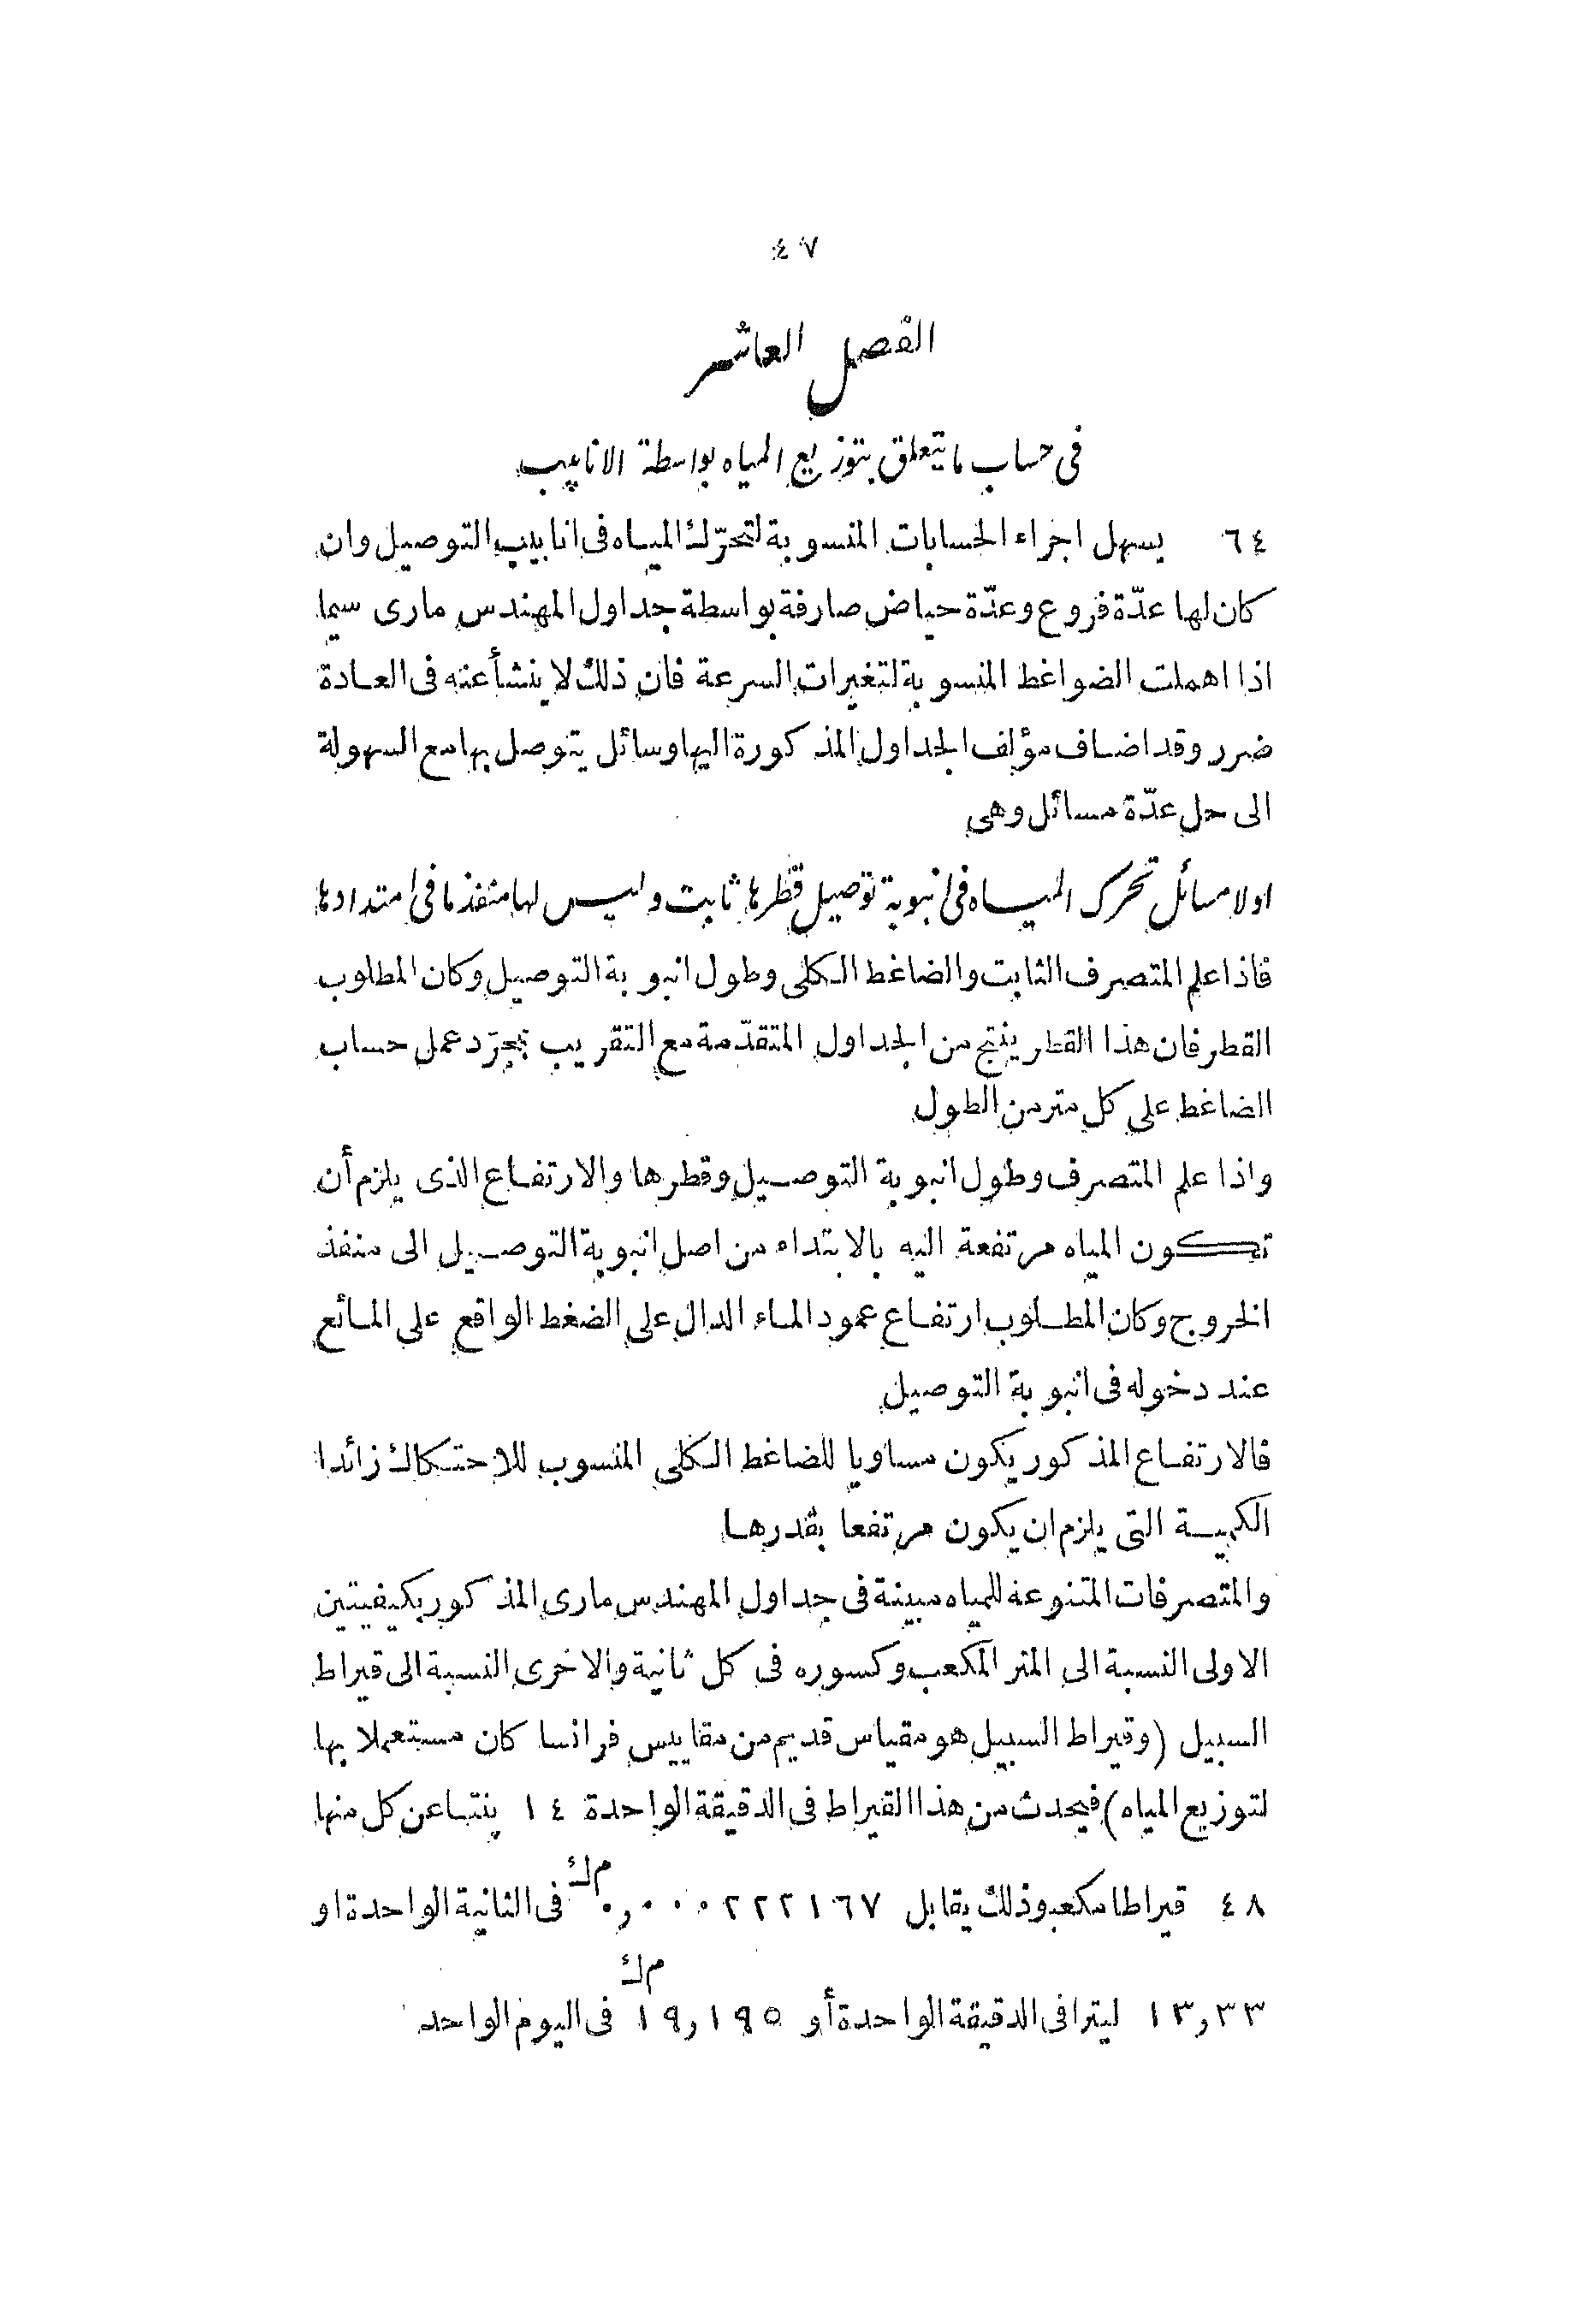 ٤٧
الفصل العاشر
فى حساب ما يتعلق بتوزيع المياه بواسطة الانابيب
٦٤ يسهل اجراء الحسابات المنسوبة لتحرّك المياه فى انابيب التوصيل وان
كان لها عدّة فروع وعدّة حياض صارفة بواسطة جداول المهندس مارى سيما
اذا اهملت الضواغط المنسوبة لتغيرات السرعة فان ذلك لا ينشأ عنه فى العادة
ضرر وقد اضاف مؤلف الجداول المذكورة اليها وسائل يتوصل بها مع السهولة
الى حل عدّة مسائل وهى
اولا مسائل تحرك المياه فى انبوبة توصيل قطرها ثابت وليس لها منفذ ما فى امتدادها
فاذا علم المتصرف الثابت والضاغط الكلى وطول انبوبة التوصيل وكان المطلوب
القطر فان هذا القطر ينتج من الجداول المتقدّمة مع التقريب بمجرّد عمل حساب
الضاغط على كل متر من الطول
واذا علم المتصرف وطول انبوبة التوصيل وقطرها والارتفاع الذى يلزم أن
تكون المياه مرتفعة اليه بالابتداء من اصل انبوبة التوصيل الى منفذ
الخروج وكان المطلوب ارتفاع عمود الماء الدال على الضغط الواقع على المائع
عند دخوله فى انبوبة التوصيل
فالارتفاع المذكور يكون مساويا للضاغط الكلى المنسوب للاحتكاك زائدا
الكمية التى يلزم ان يكون مرتفعا بقدرها
والمتصرفات المتنوعه للمياه مبينة فى جداول المهندس مارى المذكور بكيفيتين
الاولى النسبة الى المتر المكعب وكسوره فى كل ثانية والاخرى النسبة الى قيراط
السبيل (وقيراط السبيل هو مقياس قديم من مقاييس فرانسا كان مستعملا بها
لتوزيع المياه) فيحدث من هذا القيراط فى الدقيقة الواحدة ١٤ پنتا عن كل منها
٤٨ قيراطا مكعبو ذلك يقابل ٠٫٠٠٠٢٢٢١٦٧ م ك فى الثانية الواحدة او
١٣٫٣٣ ليترا فى الدقيقة الواحدة أو ١٩٫١٩٥ م ك فى اليوم الواحد